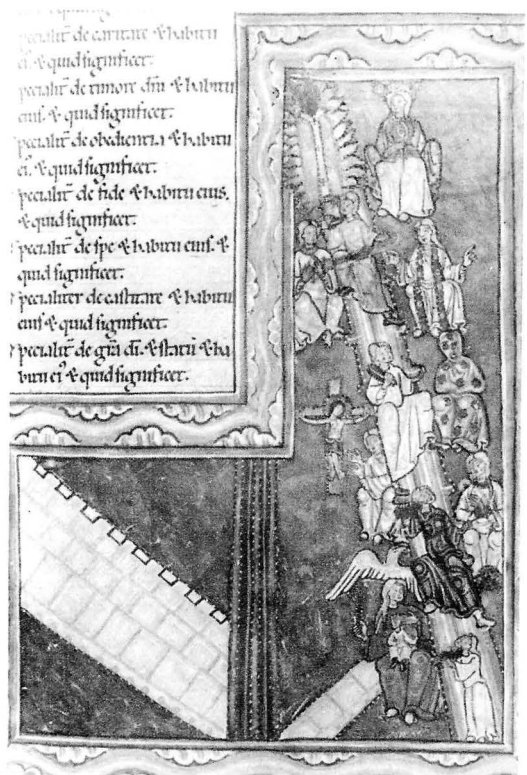 pecialit̄ de caritate ⁊ habitu
ei᷒ ⁊ quid significet.
pecialit̄ de timore dn̄i ⁊ habitu
eius ⁊ quid significet.
pecialit̄ de obedientia ⁊ habitu
ei᷒ ⁊ quid significet.
pecialit̄ de fide ⁊ habitu eius.
⁊ quid significet.
pecialit̄ de spe ⁊ habitu eius. ⁊
quid significet.
pecialiter de castitate ⁊ habitu
eius ⁊ quid significet.
pecialit̄ de gr̄a dī. ⁊ statu ⁊ ha
bitu ei᷒ ⁊ quid significet.